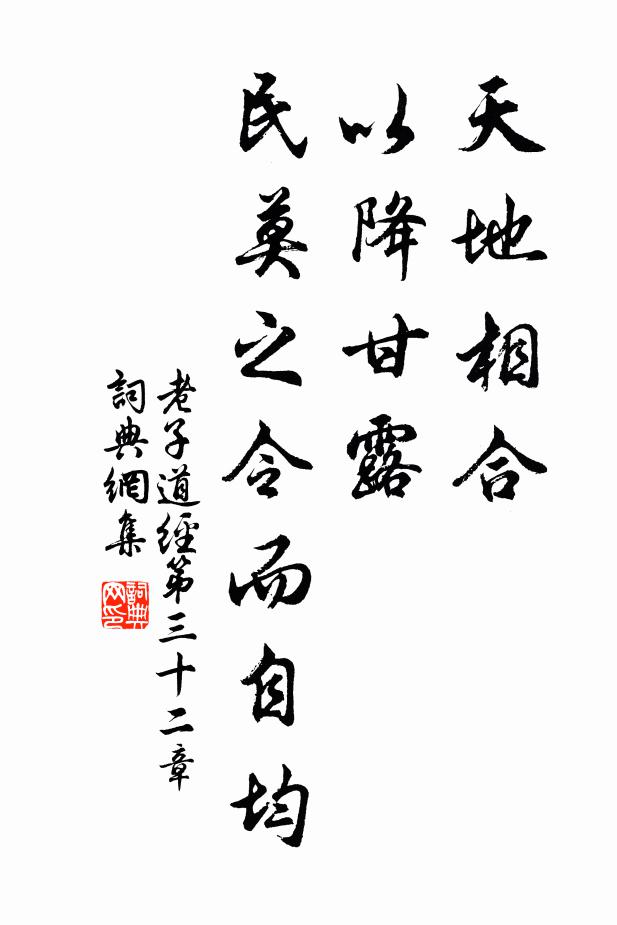 天地相合
以降甘露
民莫之令而自均
老子道經第三十二章
詞典網集
詞典网印